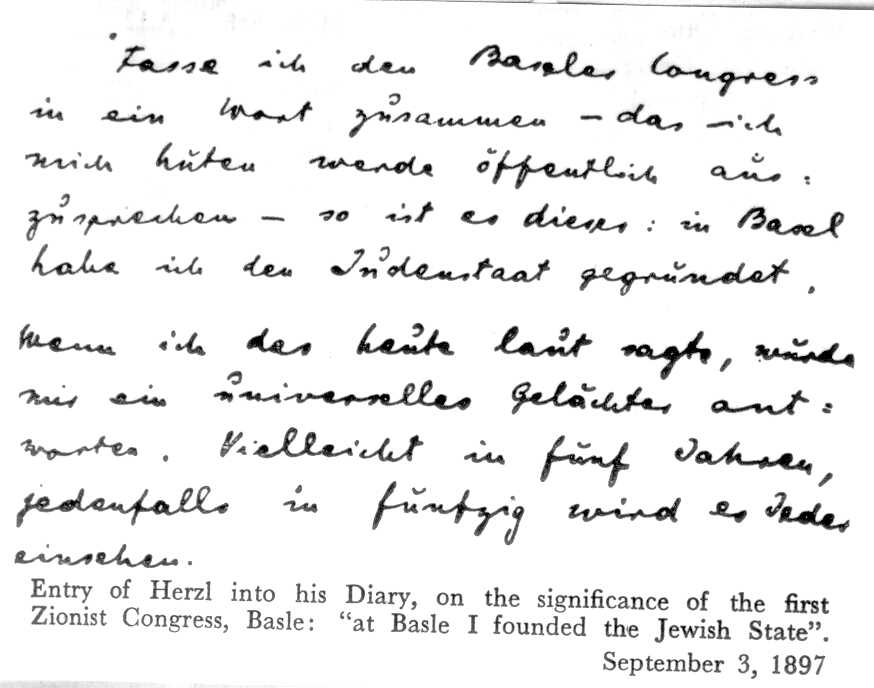 Fasse ich den Baseler Congress
in ein Wort zusammen – das ich
mich hüten werde öffentlich aus:
zusprechen – so ist es dieses: in Basel
habe ich den Judenstaat gegründet.
Wenn ich das heute laut sagte, würde
mir ein universelles Gelächter ant:
worten. Vielleicht in fünf Jahren,
jedenfalls in fünfzig wird es Jeder
einsehen.
Entry of Herzl into his Diary, on the significance of the first
Zionist Congress, Basle: “at Basle I founded the Jewish State”.
September 3, 1897